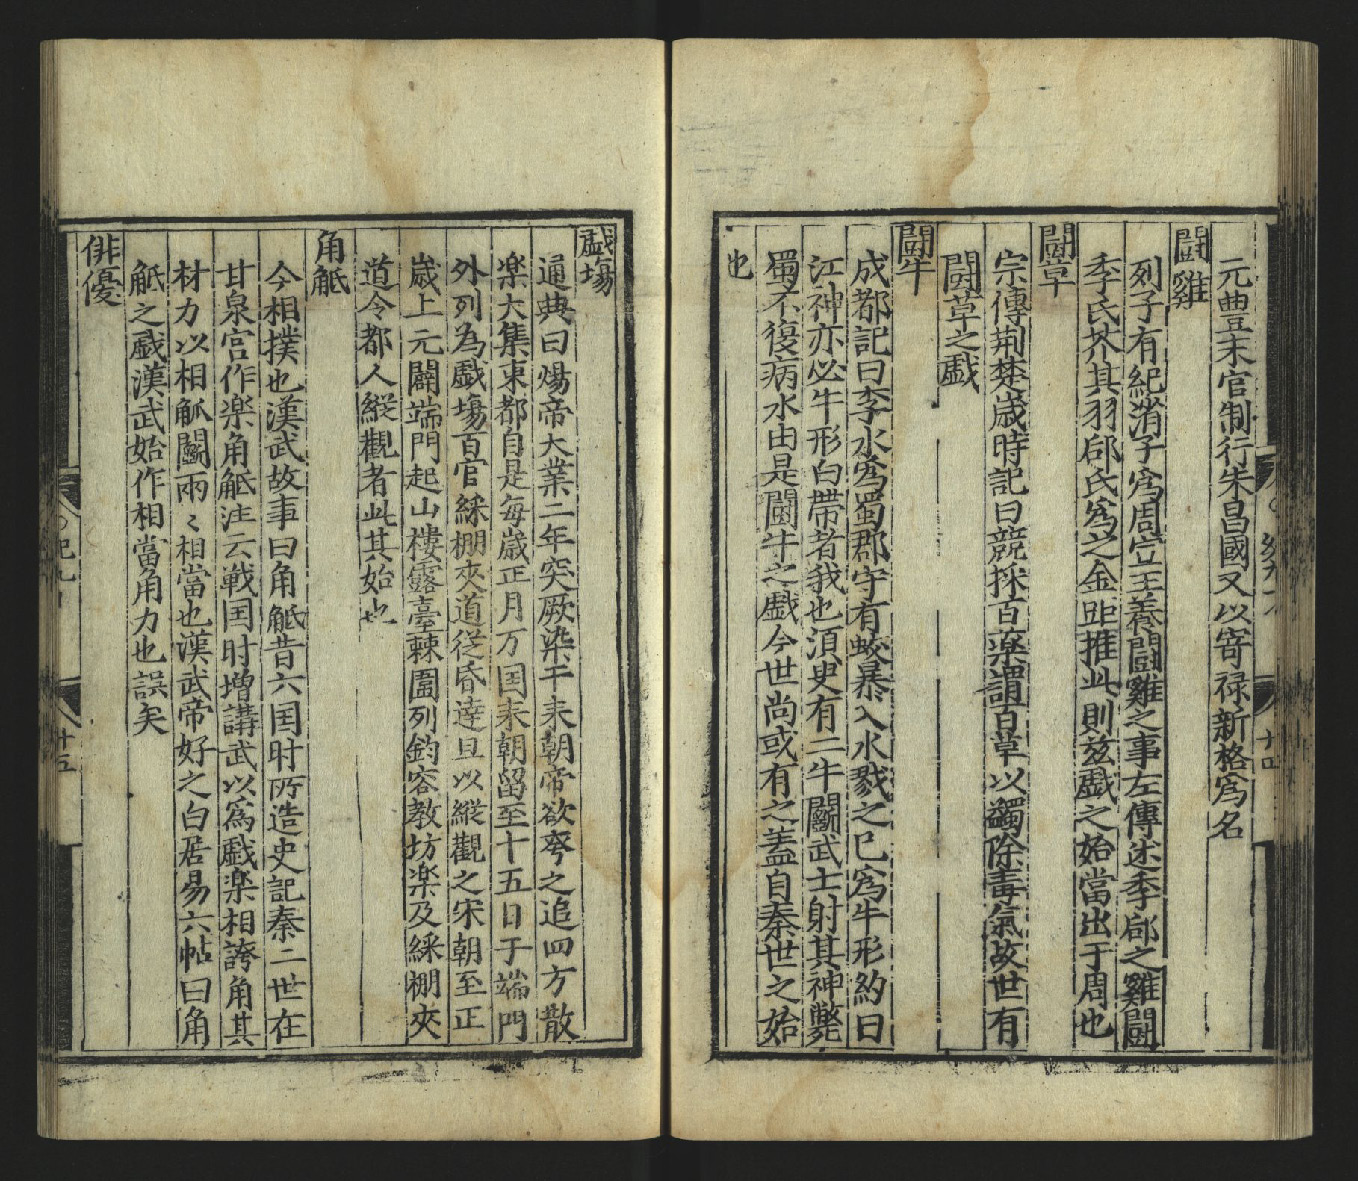 元豊末官制行朱昌國又以寄禄新格爲名
闘雞
列子有紀渻子爲周宣王養闘雞之事左傳述季郈之雞闘
季氏芥其羽郈氏爲之金距推此則兹戯之始當出于周也
闘草
宗傳荆楚歳時記曰競採百藥謂百草以蠲除毒氣故世有
闘草之戯
闘牛
成都記曰李氷爲蜀郡守有蛟暴入水戮之已爲牛形約曰
江神亦必牛形白帶者我也湏臾有二牛闘武士射其神斃
蜀不復病水由是闘牛之戯今世尚或有之盖自秦世之始
也
十四
戯塲
通典曰煬帝大業二年突厥染干来朝帝欲夸之追四方散
楽大集東都自是毎歳正月万国来朝留至十五日于端門
外列為戯塲百官綵棚夾道従昏達旦以縦觀之宋朝至正
歳上元闢端門起山樓露臺棘圍列鈞容教坊楽及綵棚夾
道令都人縦觀者此其始也
角觝
今相撲也漢武故事曰角觝昔六国时所造史記秦二世在
甘泉宫作楽角觝注云戦国时增講武以爲戯楽相誇角其
材力以相觝闘兩〻相當也漢武帝好之白居易六帖曰角
觝之戯漢武始作相當角力也誤矣
俳優
十五